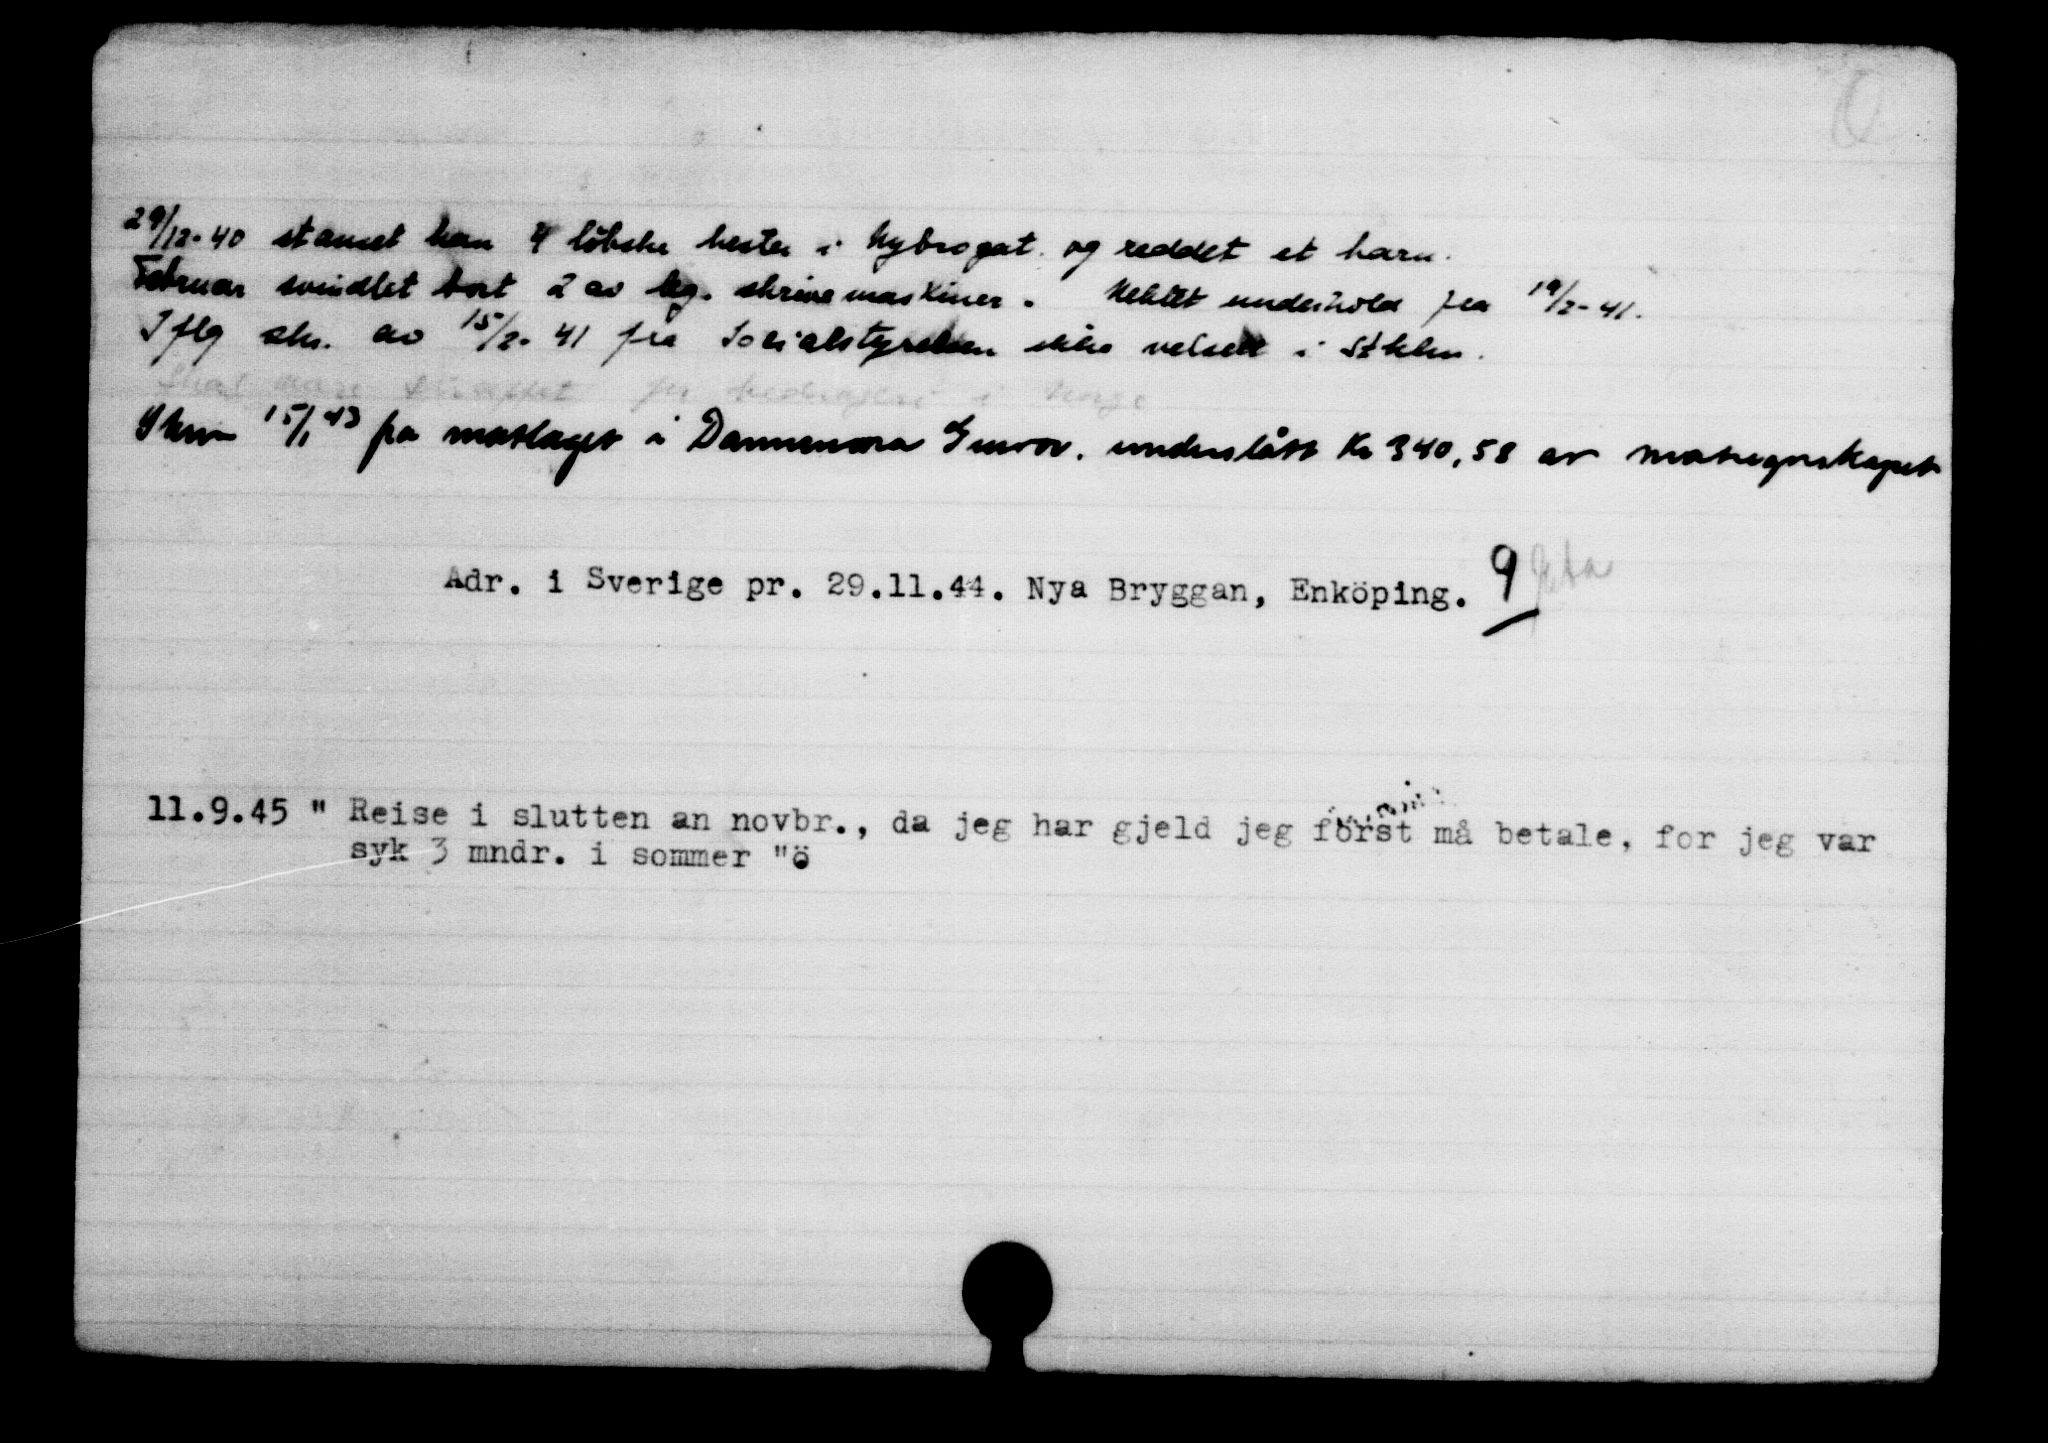 29/12-40 stanset han 4 löbske hester i Nybrogat. og reddet et barn.
Februar svindlet bort 2 av leg. skrivemaskiner. Nektet underhold fra 19/2-41.
Iflg skr. av 15/2-41 fra Socialstyrelsen ikke velsett i Stklm.
Skal være straffet for bedrageri i Norge
Skriv 15/1 43 fra matlaget i Dannemora Gruvor. underslått Kr 340,58 av matregnskapet
Adr. i Sverige pr. 29.11.44. Nya Bryggan, Enköping. 9
11.9.45 " Reise i slutten an novbr., da jeg har gjeld jeg först må betale, for jeg var
syk 3 mndr. i sommer "ö